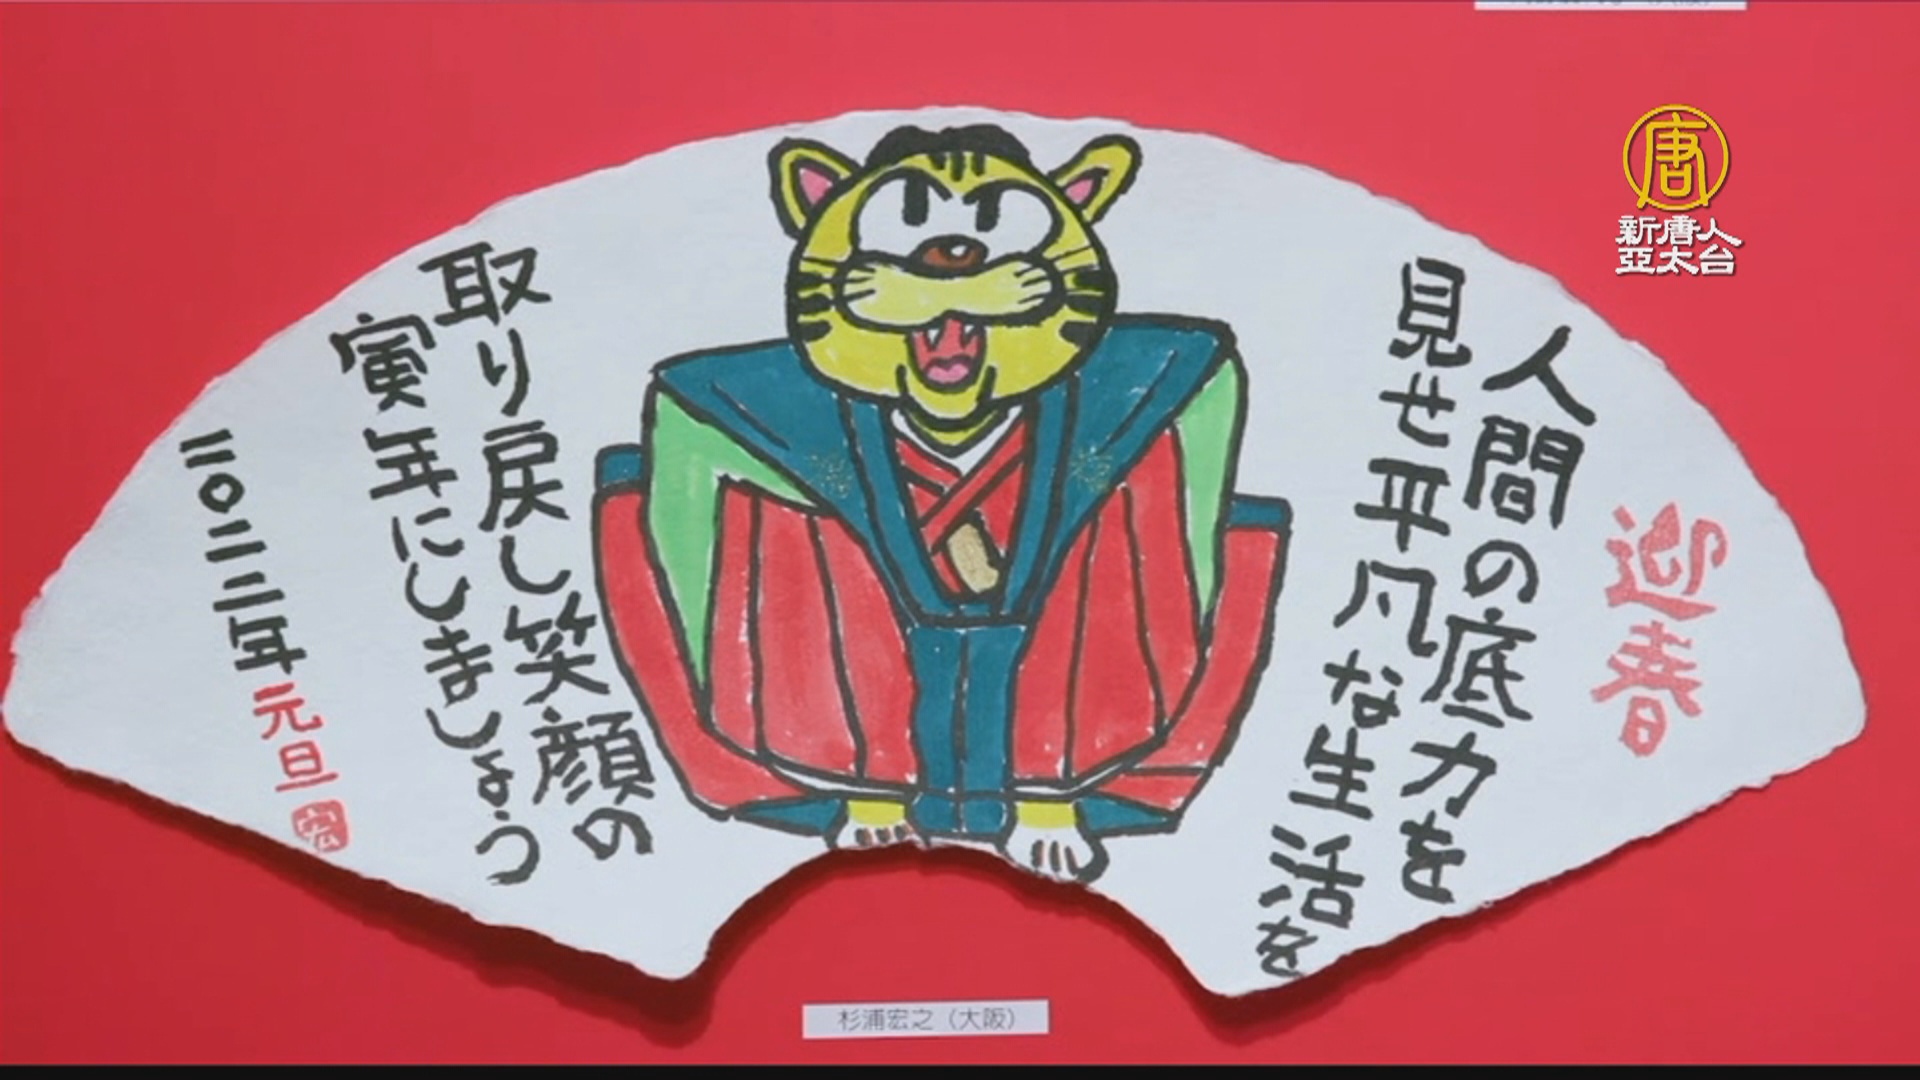 迎春
人間の底力を
見せ平凡な生活を
取り戻し笑顔の
寅年にしましょう
二〇二二年元旦
宏
杉浦宏之（大阪）
唐
新唐人
亞太台